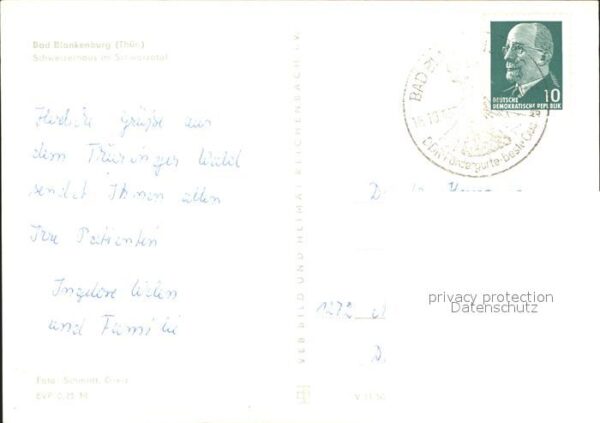 Bad Blankenburg (Thür.)
Schweizerhaus im Schwarzatal
Herzliche Grüße aus
dem Thüringer Wald
sendet Ihnen allen
Ihre Patientin
Ingelore
und Familie
Foto: Schmidt, Greiz
VEB BILD UND HEIMAT REICHENBACH i. V.
BAD
10
DEUTSCHE
DEMOKRATISCHE REPUBLIK
1272
D.
privacy protection
Datenschutz